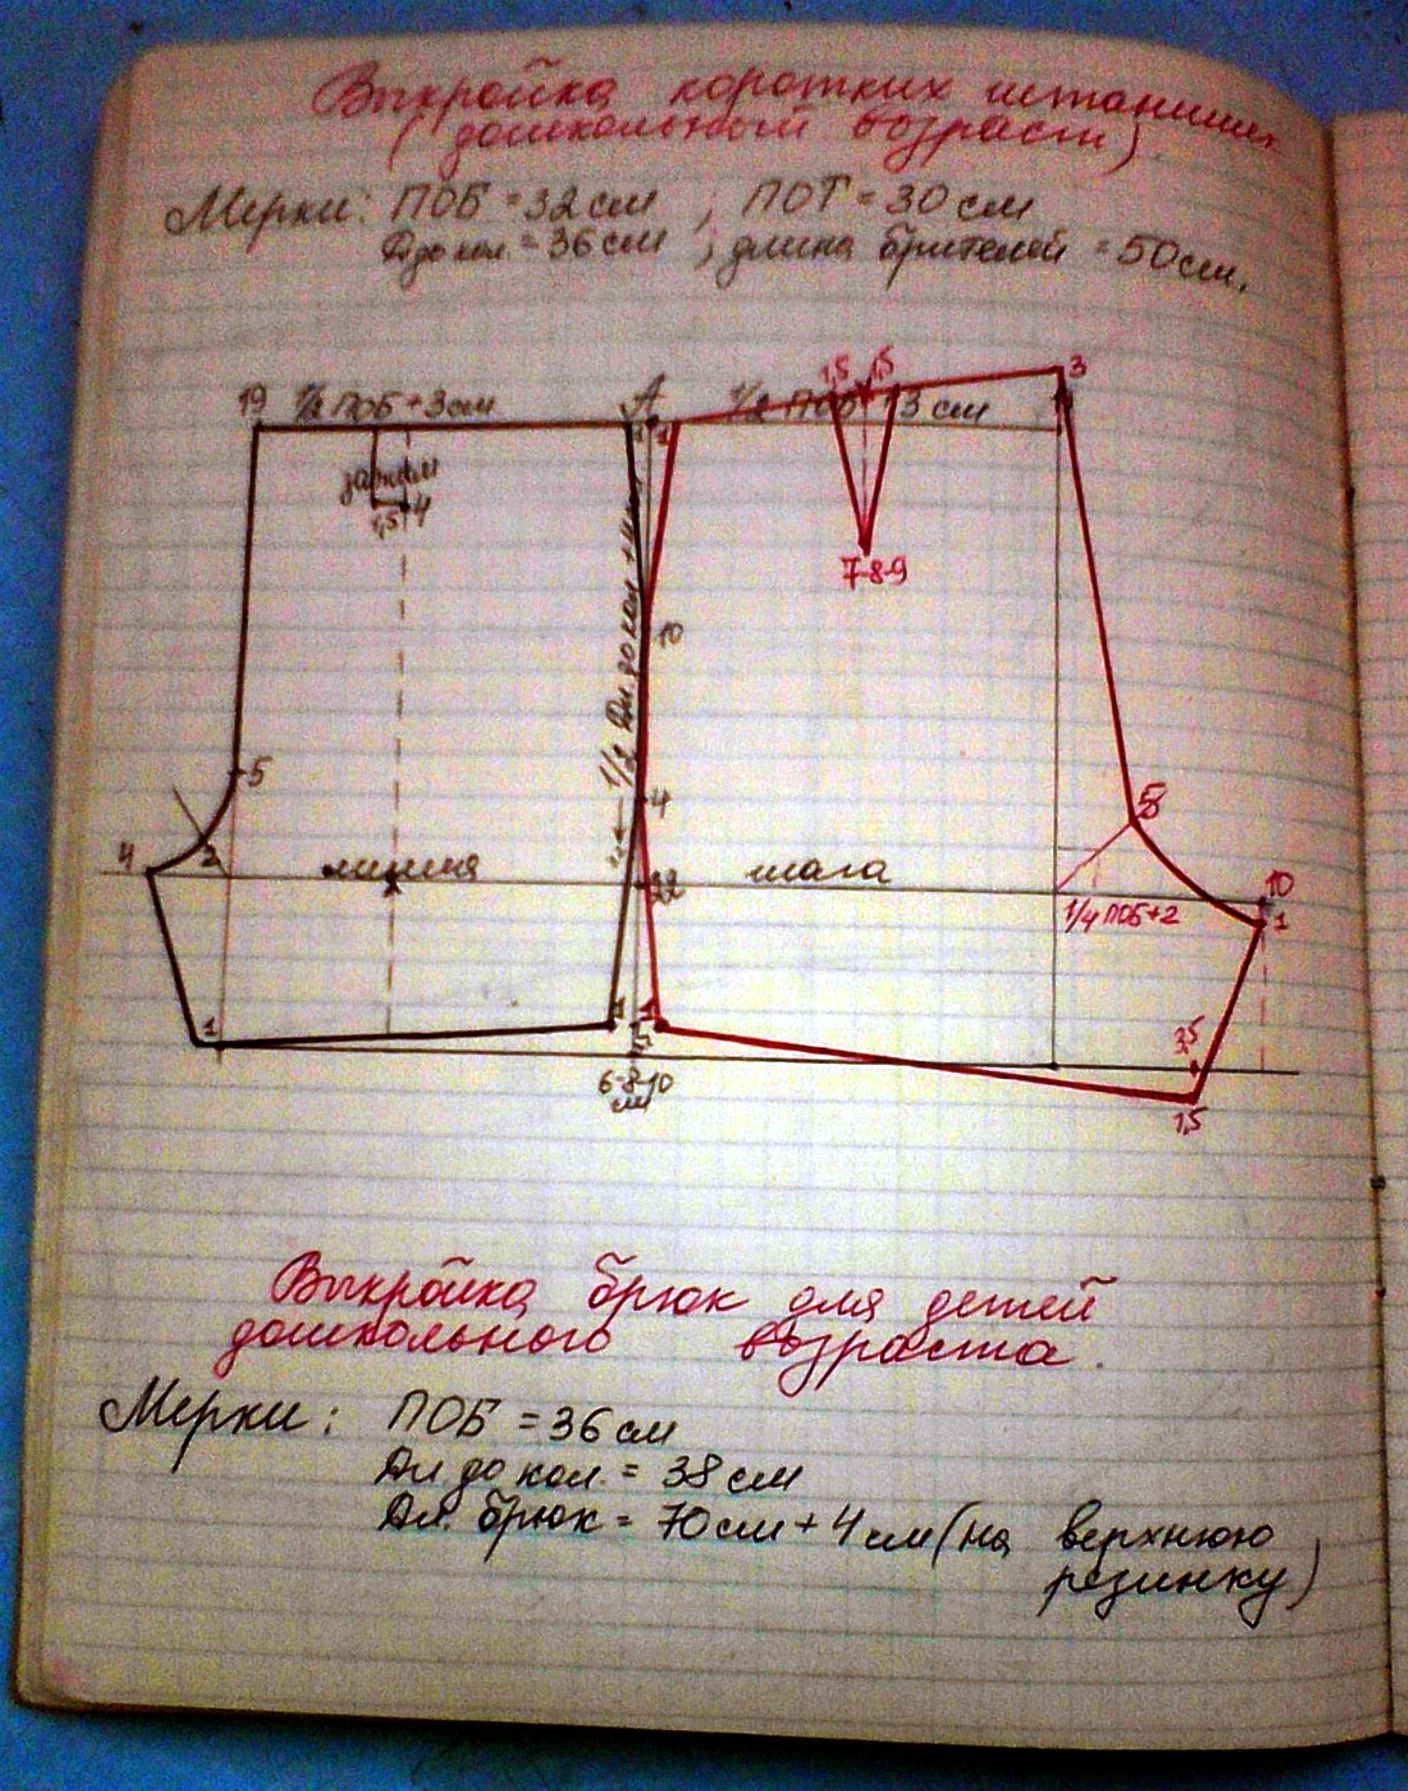 Выкройка коротких штанишек
(дошкольный возраст).
Мерки: ПОБ = 32 см ; ПОТ = 30 см
Д до кол. = 36 см ; длина бретелей = 50 см.
1,5 1,5 3
19 1/2 ПОБ + 3 см А 1/2 ПОБ + 3 см
1 1
зажим
1,5 4
7-8-9
1/2 Дл. до кол + 4 см
10
5
4
4 2 линия 22 шага 10
1/4 ПОБ+2 1
1 1
3,5
6-8-10
см
1,5
Выкройка брюк для детей
дошкольного возраста.
Мерки: ПОБ = 36 см
Дл до кол. = 38 см
Дл. брюк = 70 см + 4 см (на верхнюю
резинку)